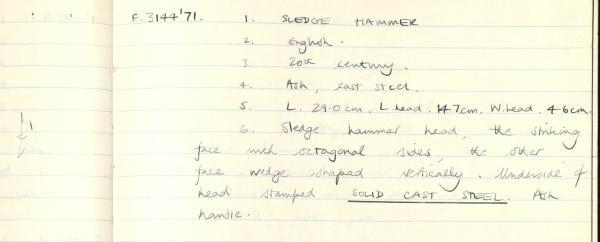 F.3144'71. 1. SLEDGE HAMMER
2. English.
3. 20th century.
4. Ash, cast steel.
5. L. 29.0cm. L head. 14.7cm. W. head. 4.6cm.
6. Sledge hammer head, the striking
face with octagonal sides, the other
face wedge shaped vertically. Underside of
head stamped SOLID CAST STEEL. Ash
handle.